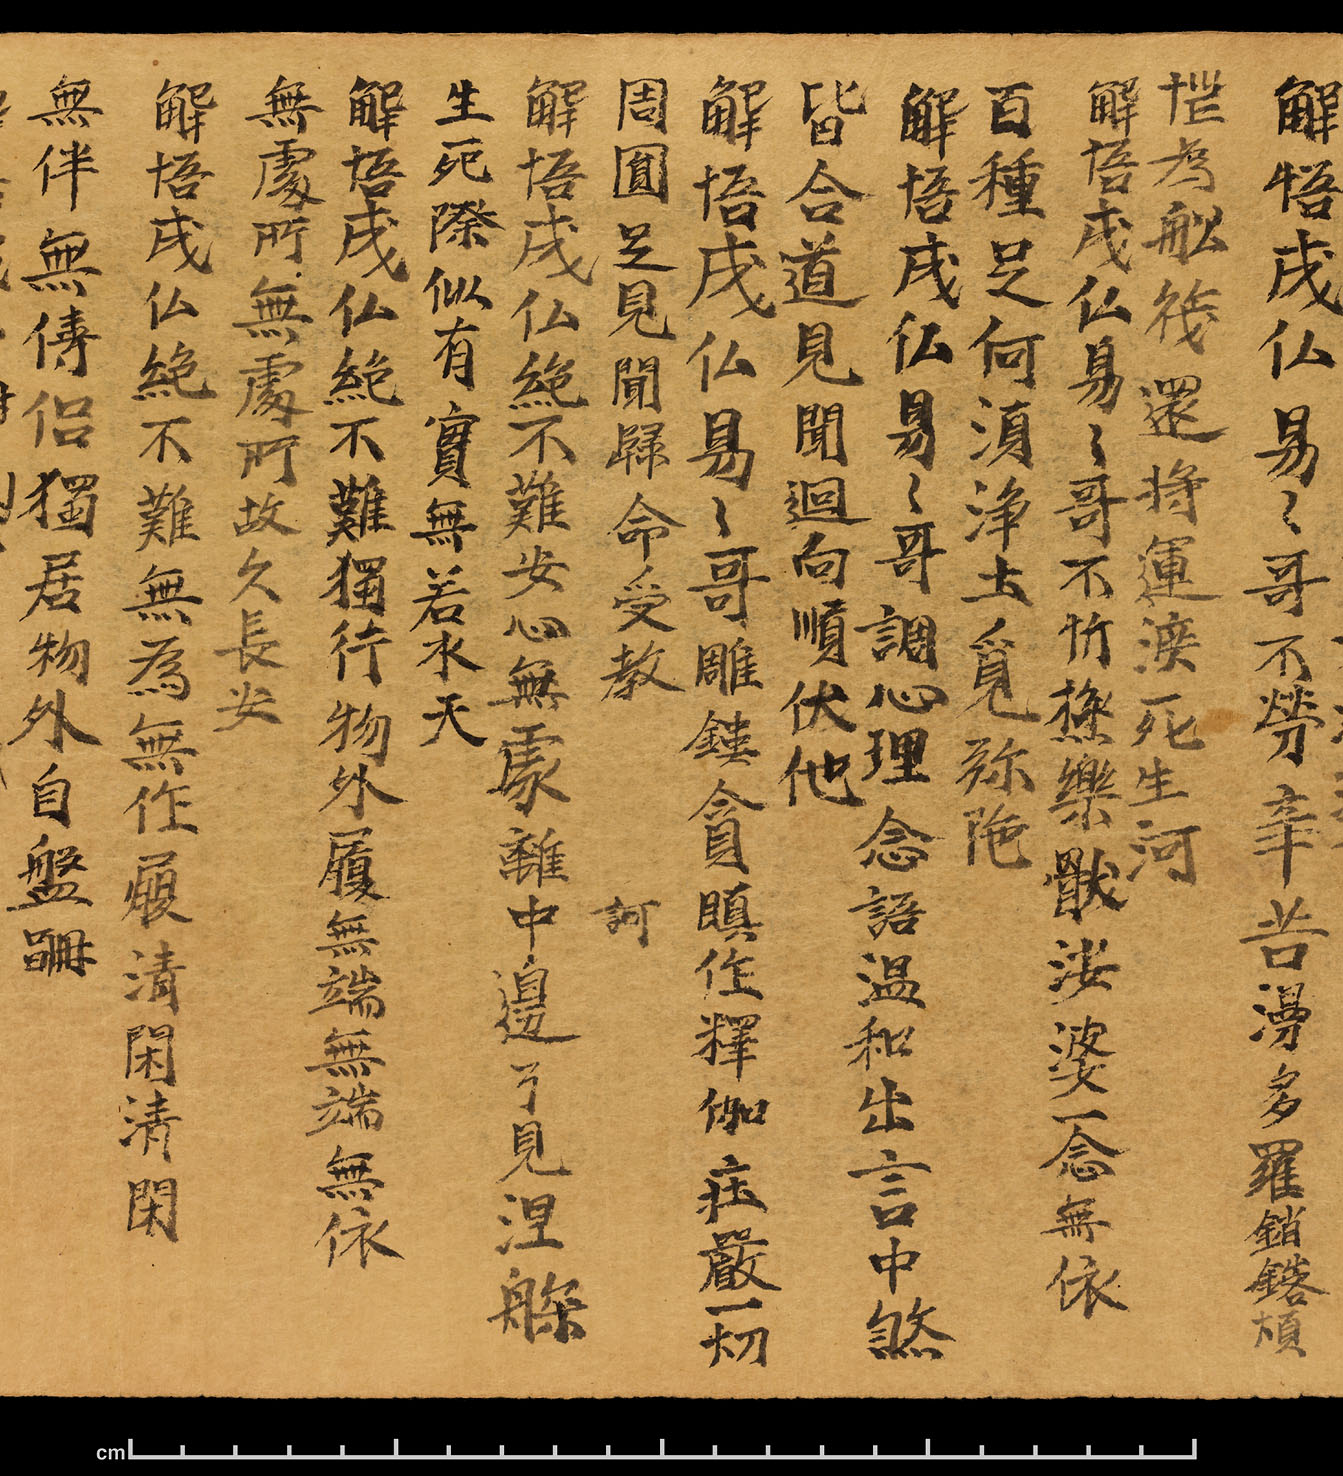 解悟成仏易〻哥不勞辛苦漫多羅銷鎔煩
惱為舩筏還將運渡死生河
解悟成仏易〻哥不忻撡樂猒娑婆一念無依
百種足何湏淨土覓弥陁
解悟成仏易〻哥調心理念語温和出言中煞
皆合道見聞迴向順伏他
解悟成仏易〻哥雕鏤貪瞋作釋伽莊嚴一切
周圓足見聞歸命受教訶
解悟成仏絶不難安心無處離中邊了見涅槃
生死際似有實無若水天
解悟成仏絶不難獨行物外履無端無端無依
無處所無處所故久長安
解悟成仏絶不難無為無作履清閑清閑
無伴無儔侣獨居物外自盤跚